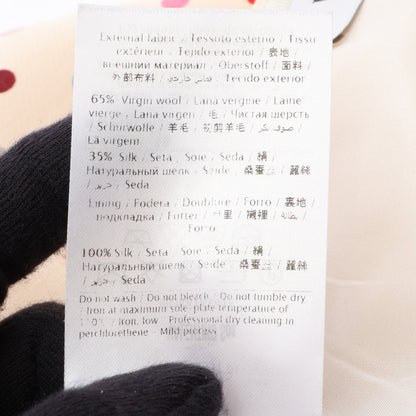 External fabric / Tessuto esterno / Tissu
extérieur / Tejido exterior / 表地
внешний материал / Oberstoff / 面料 /
外部布料 / قماش خارجي / Tecido exterior
65% Virgin wool / Lana vergine / Laine
vierge / Lana virgen / 毛 / Чистая шерсть
/ Schurwolle / 羊毛 / 初剪羊毛 / صوف بكر /
Lã virgem
35% Silk / Seta / Soie / Seda / 絹 /
Натуральный шелк / Seide / 桑蚕丝 / 蠶絲
/ حرير / Seda
Lining / Fodera / Doublure / Forro / 裏地 /
подкладка / Futter / 里 / 襯裡 / بطانة /
Forro
100% Silk / Seta / Soie / Seda / 絹 /
Натуральный шелк / Seide / 桑蚕丝 / 蠶絲
/ حرير / Seda
Do not wash / Do not bleach / Do not tumble dry
/ Iron at maximum sole-plate temperature of
/ Iron, low / Professional dry cleaning in
perchlorethene - Mild process